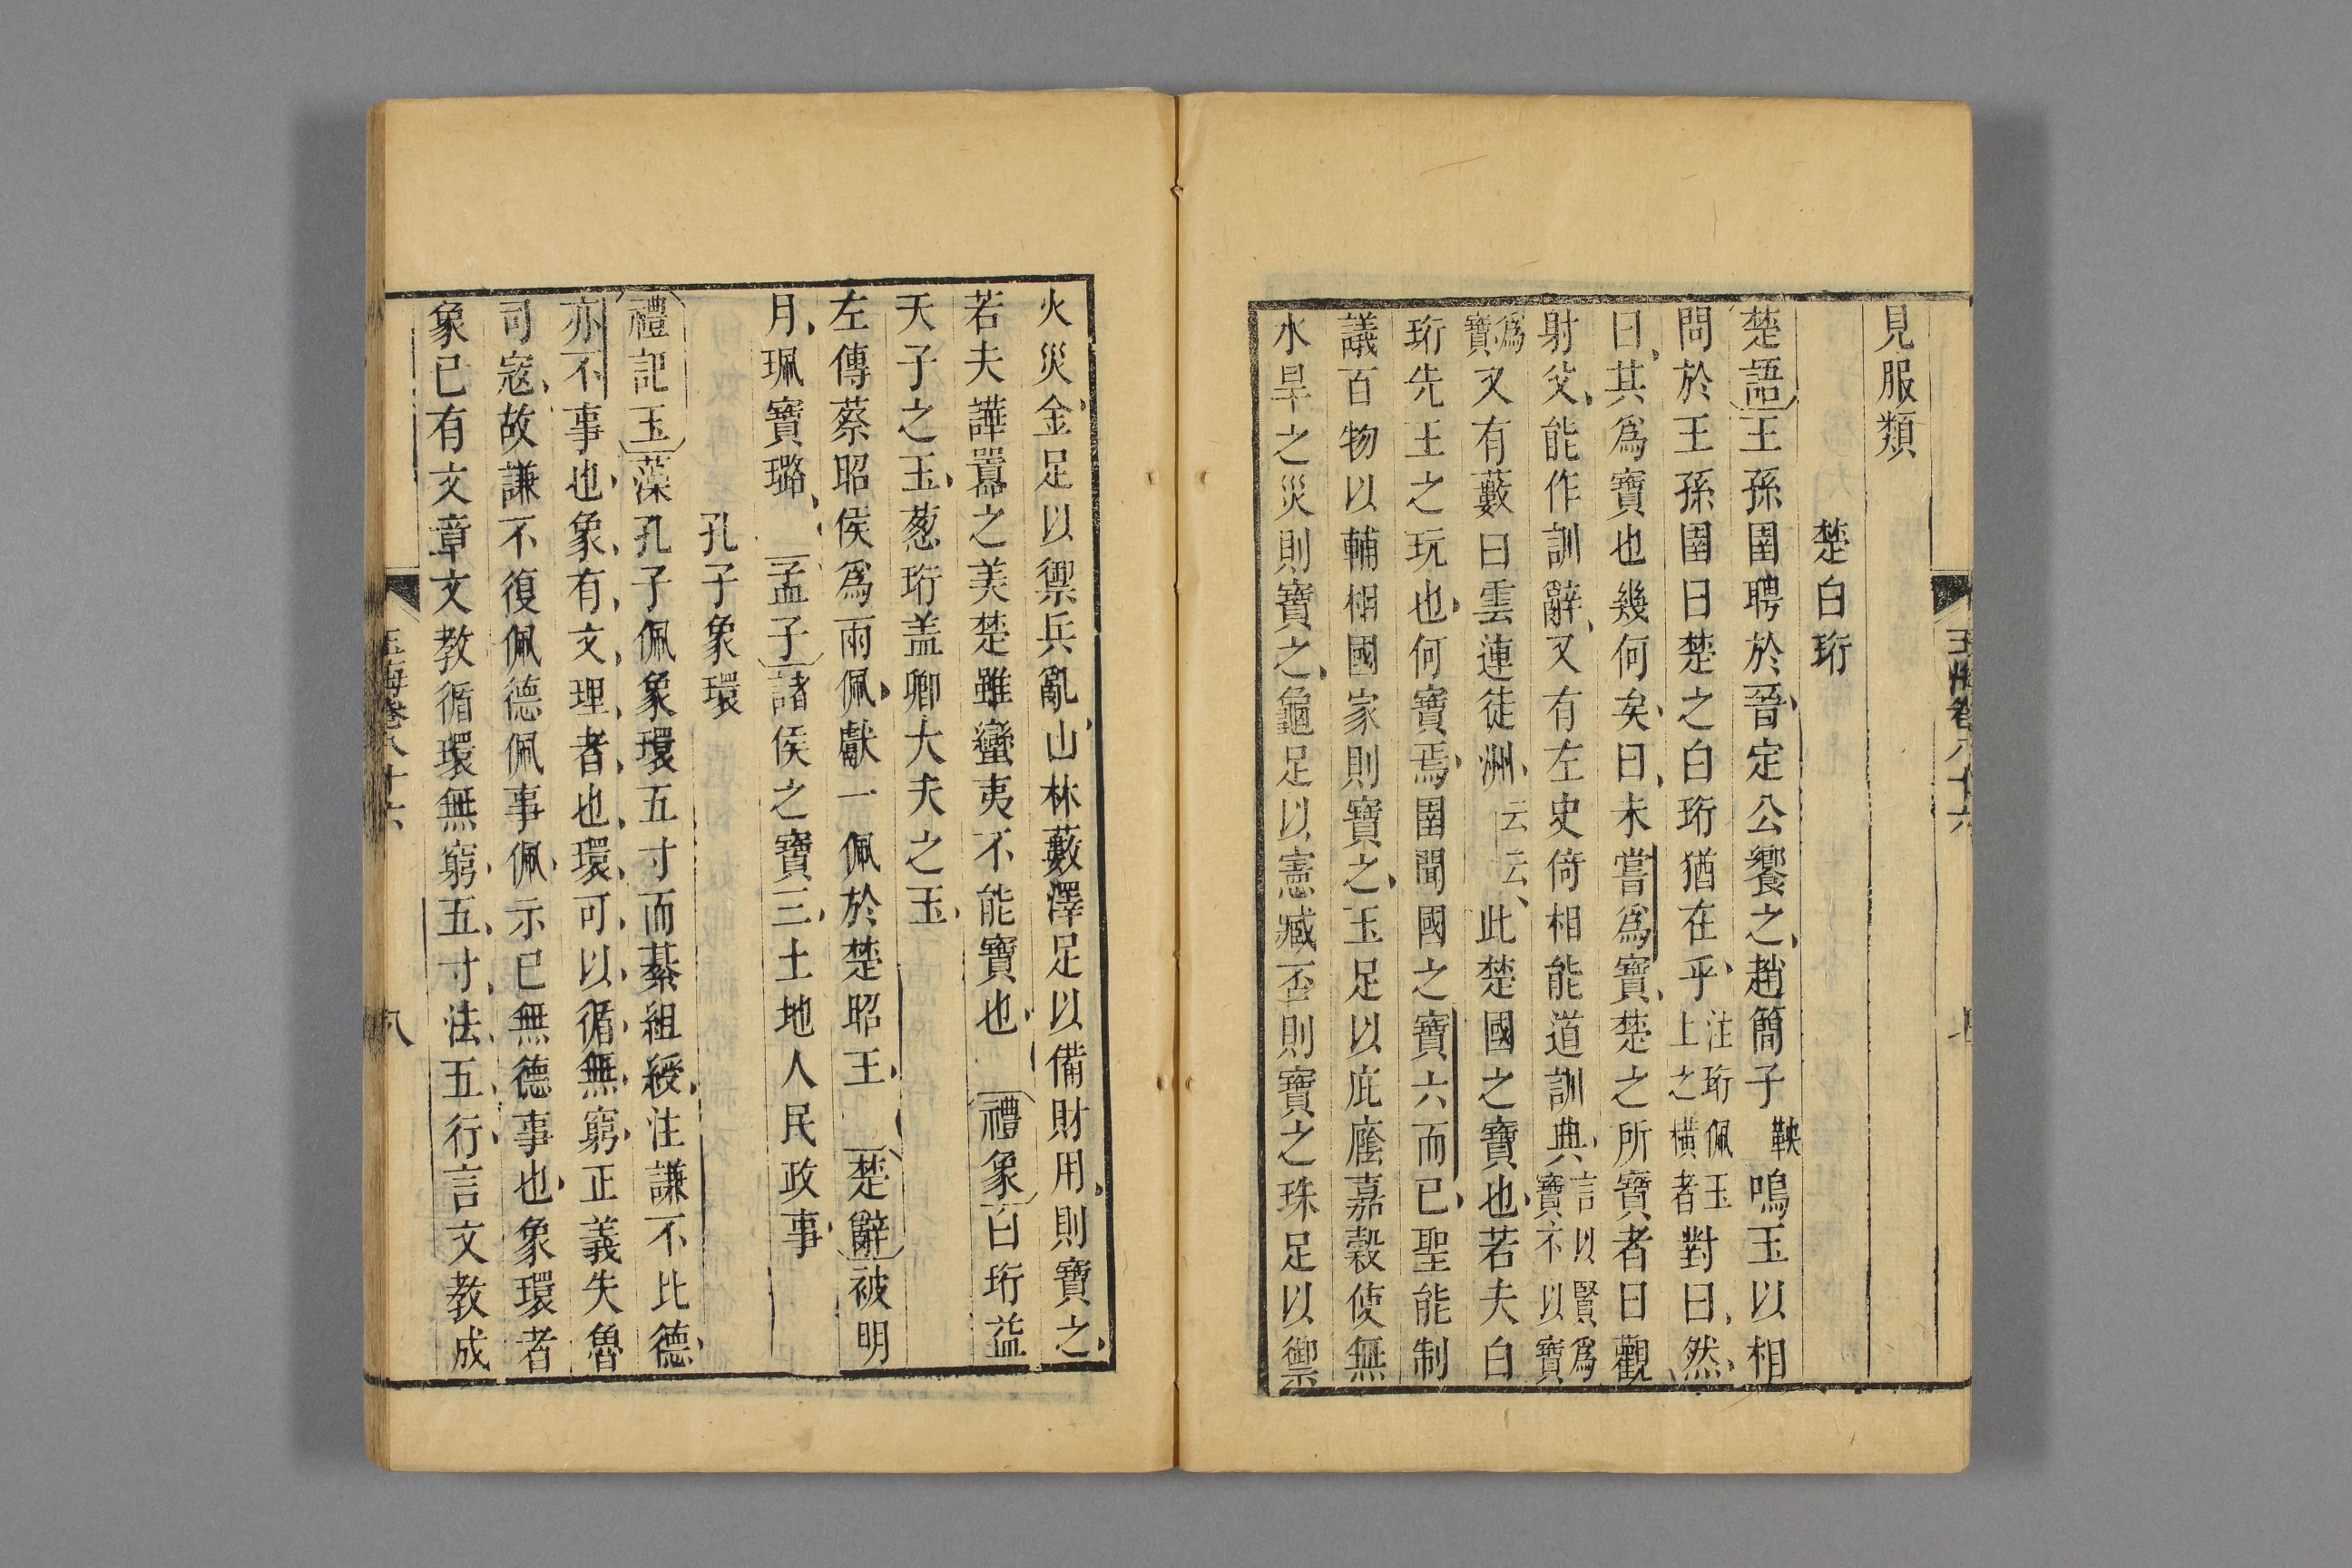 見服類
楚白珩
楚語王孫圉聘於晉定公饗之趙簡子鞅鳴玉以相
問於王孫圉曰楚之白珩猶在乎注珩佩玉上之橫者對曰然
曰其爲寶也幾何矣曰未嘗爲寶楚之所寶者曰觀
射父能作訓辭又有左史倚相能道訓典言以賢爲寶不以寶
爲寶又有藪曰雲連徒洲云云此楚國之寶也若夫白
珩先王之玩也何寶焉圉聞國之寶六而已聖能制
議百物以輔相國家則寶之玉足以庇廕嘉穀使無
水旱之災則寶之龜足以憲臧否則寶之珠足以禦
火災金足以禦兵亂山林藪澤足以備財用則寶之
若夫譁嚻之美楚雖蠻夷不能寶也 禮象白珩益
天子之玉葱珩盖卿大夫之玉
左傳蔡昭侯爲兩佩獻一佩於楚昭王 楚辭被明
月珮寶璐 孟子諸侯之寶三土地人民政事
孔子象環
禮記玉藻孔子佩象環五寸而綦組綬注謙不比德
亦不事也象有文理者也環可以循無窮正義失魯
司寇故謙不復佩德佩事佩示已無德事也象環者
象已有文章文教循環無窮五寸法五行言文教成
玉海卷八十六
八